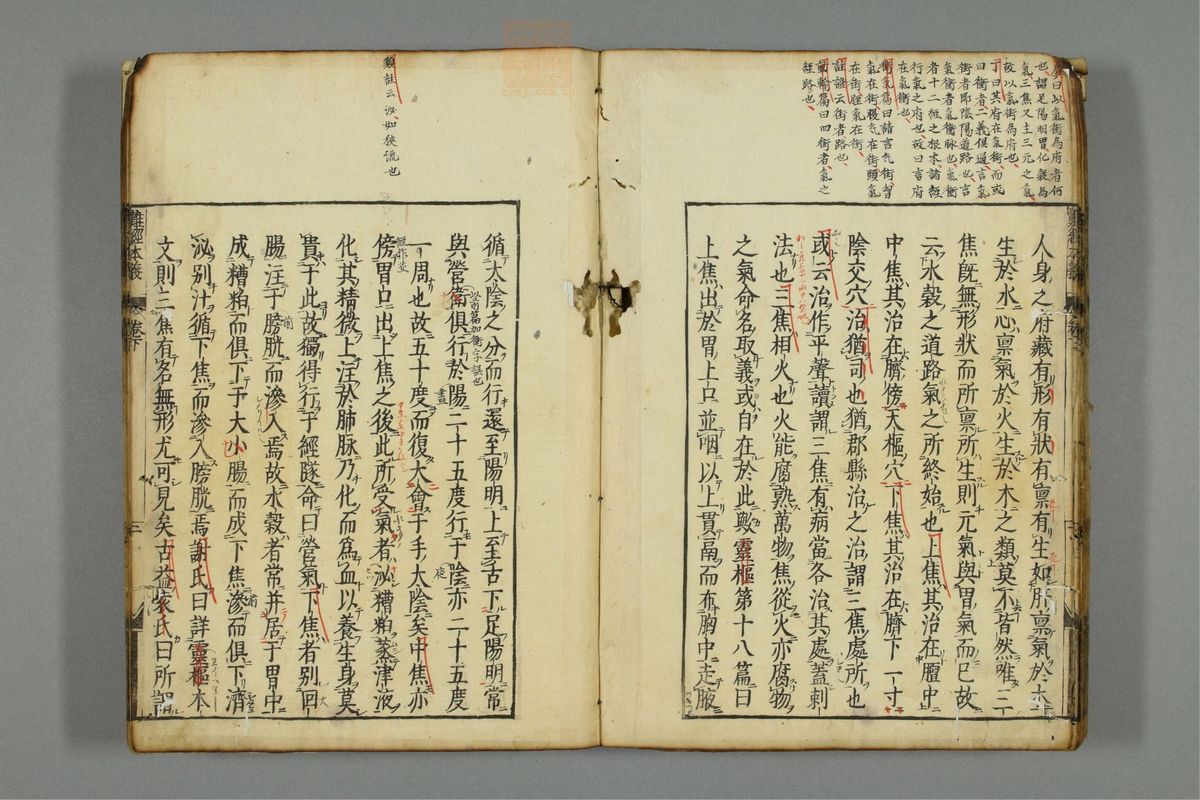 也謂足陽明胃化穀為
氣三焦又主三元之氣
故以氣街為府也
丁曰其府在氣街而或
曰衝者二義俱通言氣
街者即陰陽道路也言
氣衝者氣衝脉也氣衝
者十二經之根本諸經
行氣之府也故曰言府
在氣衝也
衛氣篇曰請言气街胷
氣在街腹气在街頭氣
在街脛氣在街
註證云街者路也
曰四街者氣之
徑路也
人身之府藏有形有狀有禀有生如肝禀氣於木
生於水心禀氣於火生於木之類莫不皆然唯三
焦既無形狀而所禀所生則元氣與胃氣而已故
云水穀之道路氣之所終始也上焦其治在膻中
中焦其治在臍傍天樞穴下焦其治在臍下一寸
陰交穴治猶司也猶郡縣治之治謂三焦處所也
或云治作平聲讀謂三焦有病當各治其處蓋刺
法也三焦相火也火能腐熟萬物焦從火亦腐物
之氣命名取義或自在於此歟靈樞第十八篇曰
上焦出於胃上口並咽以上貫膈而布胸中走腋
類註云泌如狹流也
循太陰之分而行還至陽明上至舌下足陽明常
與營衛俱行於陽二十五度行于陰亦二十五度
一周也故五十度而復大會于手太陰矣中焦亦
傍胃口出上焦之後此所受氣者泌糟粕蒸津液
化其精微上注於肺脉乃化而為血以養生身莫
貴于此故獨得行于經隧命曰營氣下焦者別回
腸注于膀胱而滲入焉故水穀者常并居于胃中
成糟粕而俱下于大小腸而成下焦滲而俱下濟
泌別汁循下焦而滲入膀胱焉謝氏曰詳靈樞本
文則三焦有名無形尤可見矣古益袁氏曰所謂
難經本義
卷下